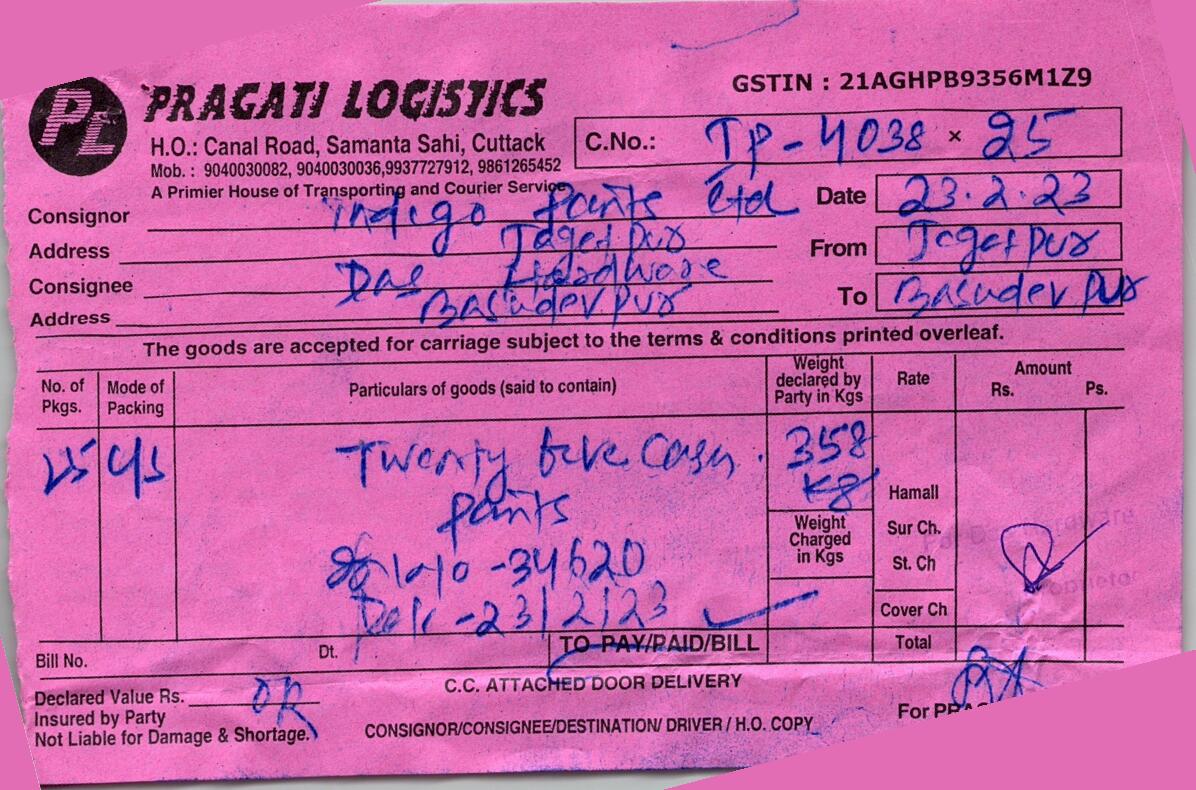 PL PRAGATI LOGISTICS
GSTIN : 21AGHPB9356M1Z9
H.O.: Canal Road, Samanta Sahi, Cuttack
Mob. : 9040030082, 9040030036,9937727912, 9861265452
A Primier House of Transporting and Courier Service
C.No.: TP-4038 × 25
Consignor Indigo paints Ltd
Date 23.2.23
Address Jagatpur
From Jagatpur
Consignee Das Hardware
To Basudevpur
Address Basudevpur
The goods are accepted for carriage subject to the terms & conditions printed overleaf.
No. of Pkgs. Mode of Packing Particulars of goods (said to contain) Weight declared by Party in Kgs Rate Amount Rs. Ps.
25 C/S Twenty five Cases. 358 Kg
paints
Hamali
Weight Charged in Kgs
Sur Ch.
-34620
St. Ch
-23/2/23
Cover Ch
Bill No. Dt. TO PAY/PAID/BILL Total
Declared Value Rs.
C.C. ATTACHED DOOR DELIVERY
Insured by Party
Not Liable for Damage & Shortage.
CONSIGNOR/CONSIGNEE/DESTINATION/ DRIVER / H.O. COPY
For